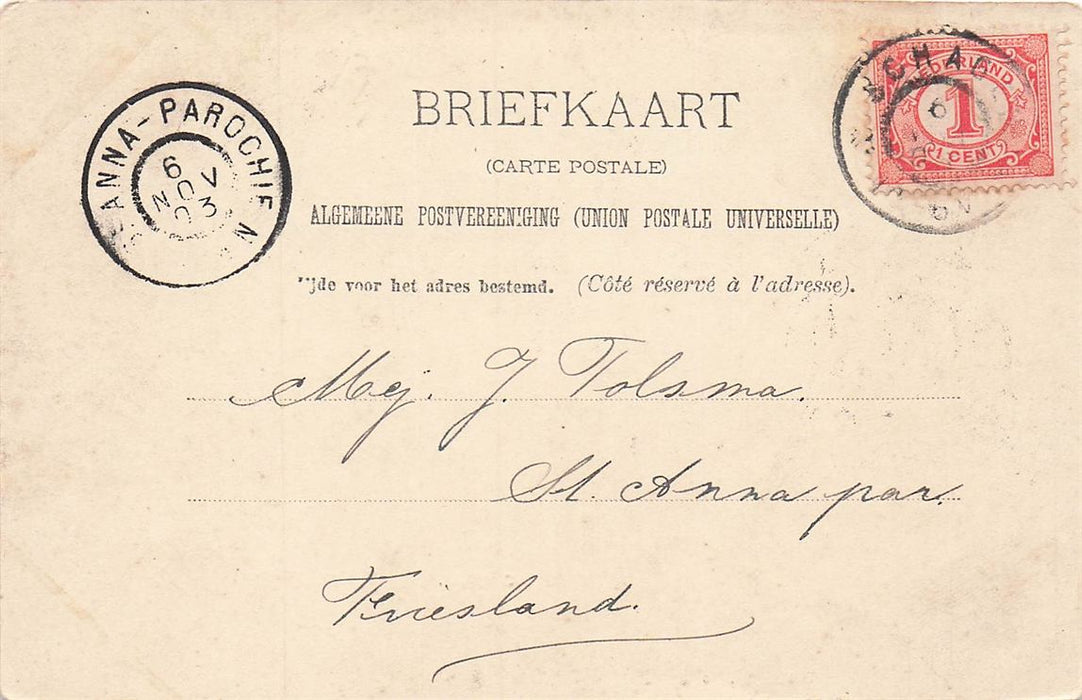 BRIEFKAART
(CARTE POSTALE)
ALGEMEENE POSTVEREENIGING (UNION POSTALE UNIVERSELLE)
voor het adres bestemd. (Côté réservé à l'adresse).
ANNA-PAROCHIE
6
NOV
03
NEDERLAND
1
1 CENT
Mej. J. Tolsma.
St. Anna par.
Friesland.